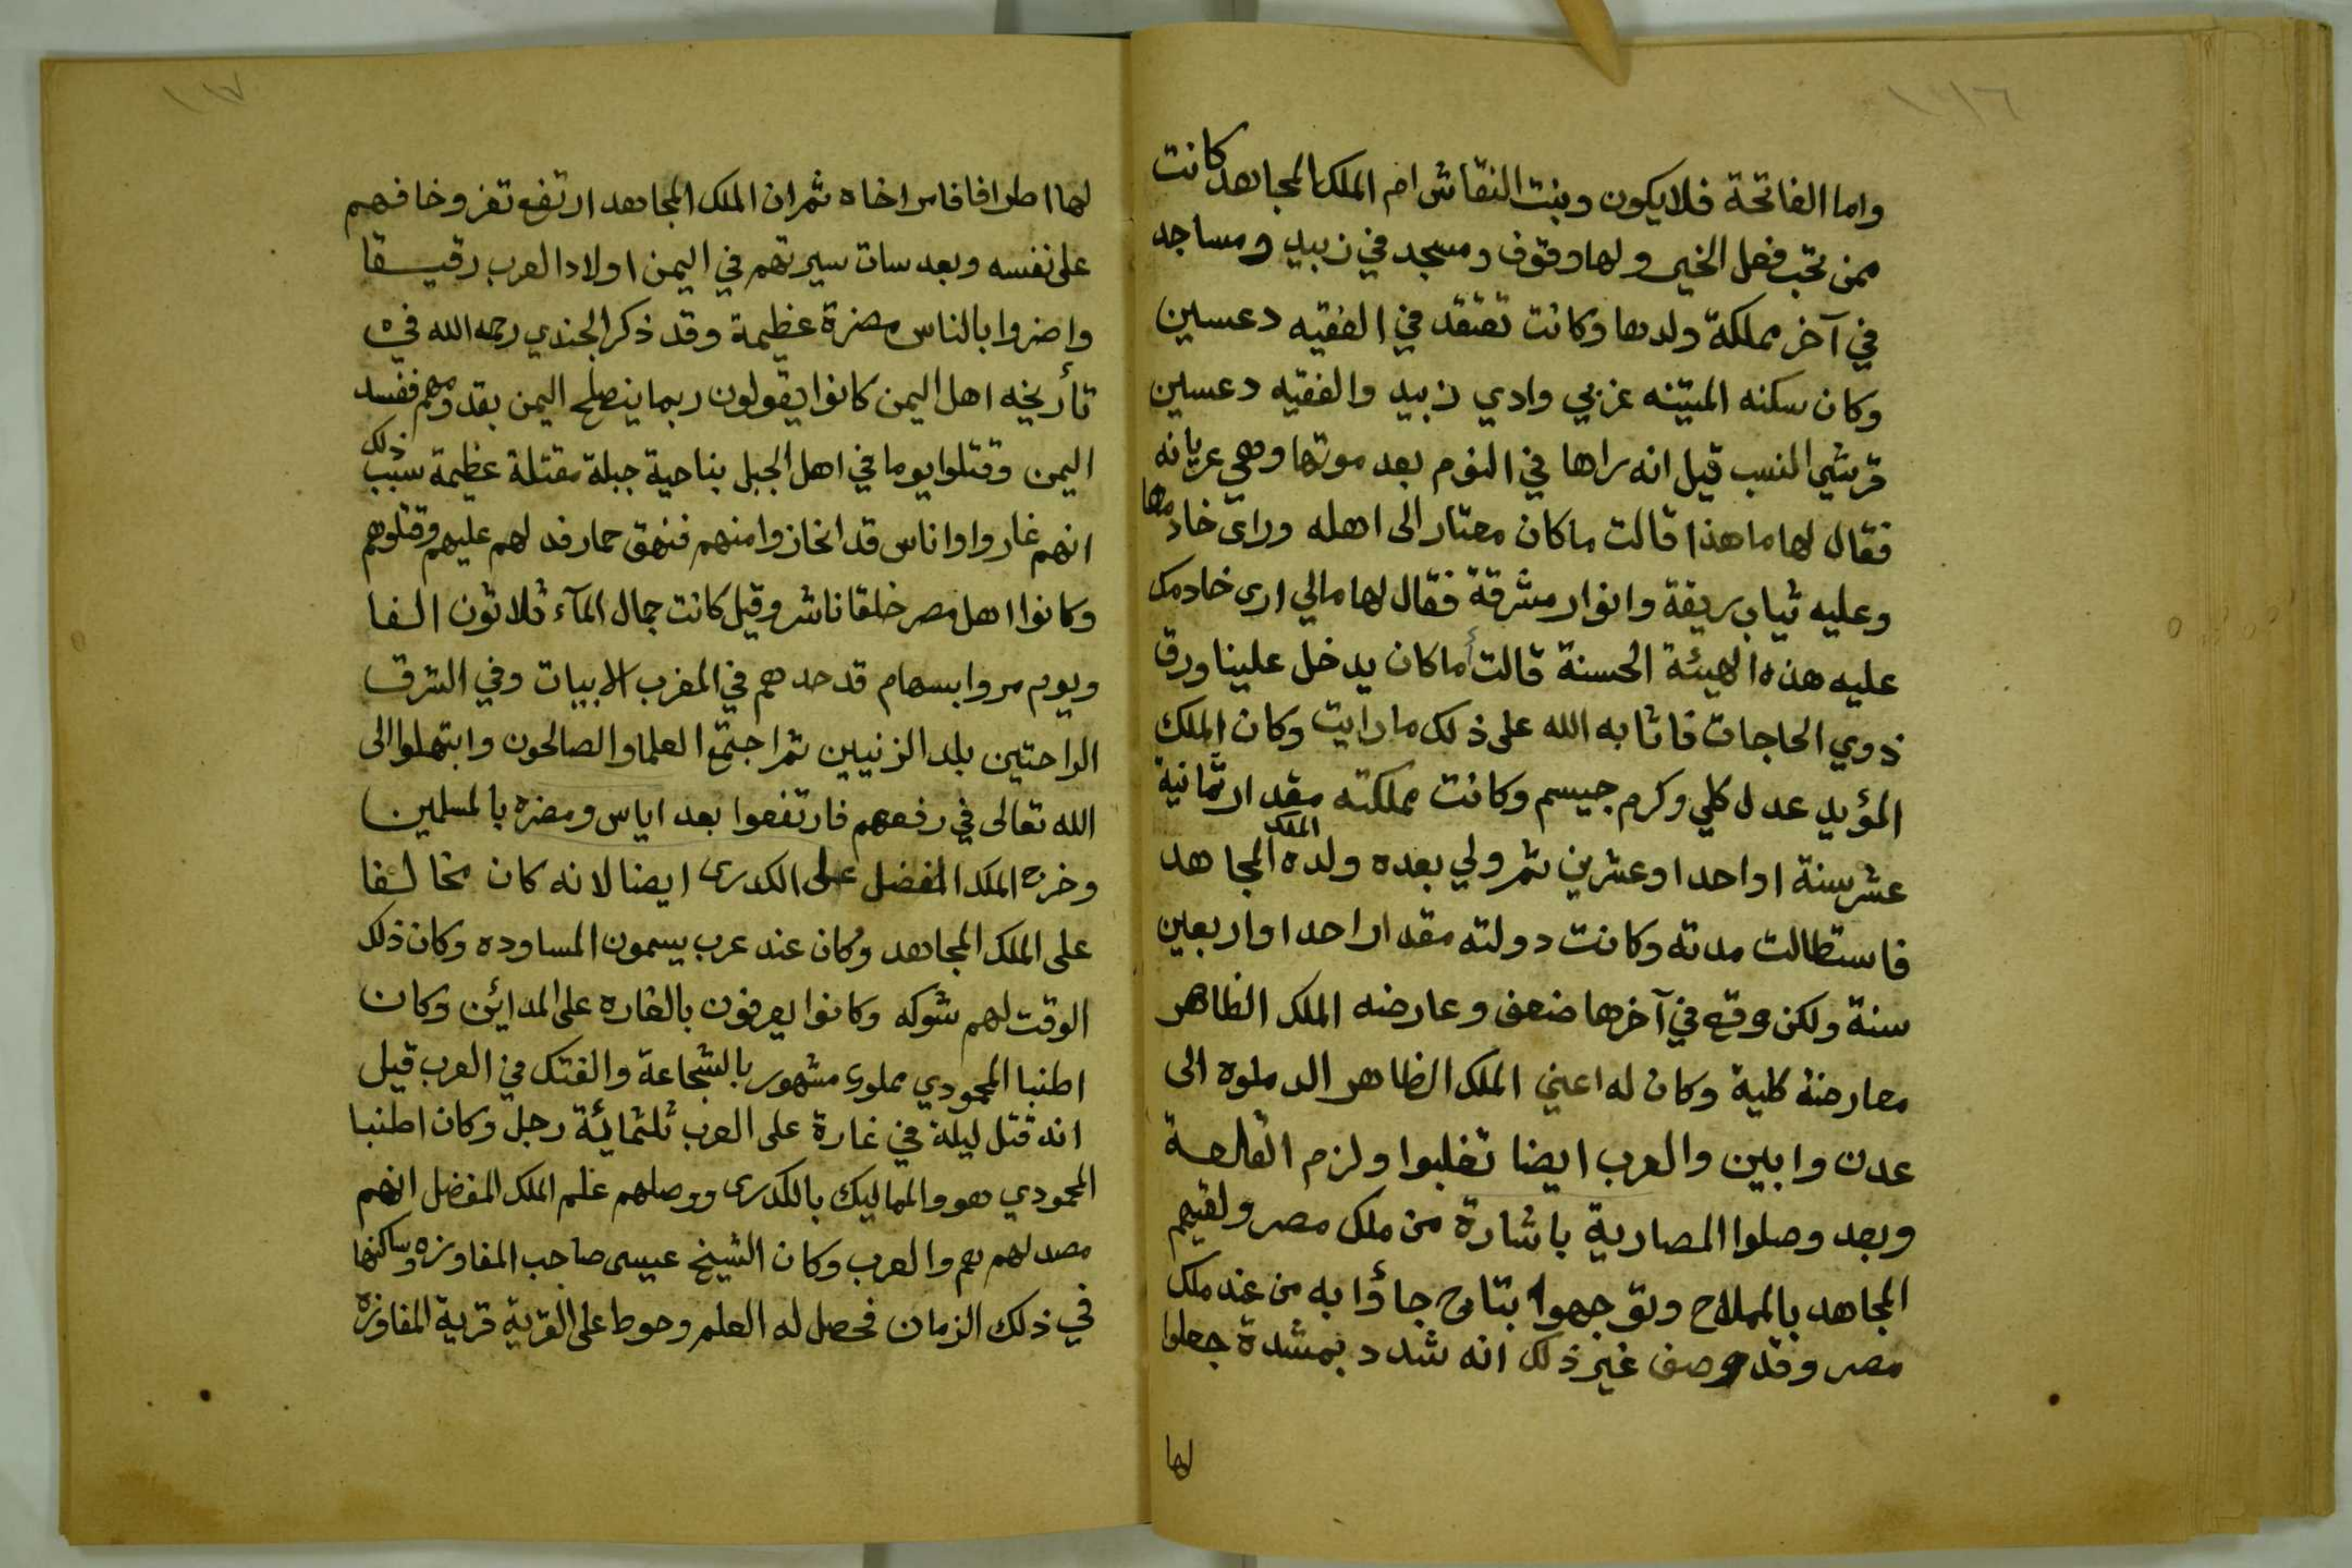 ١١٦
واما الفاتحة فلا يكون وبنت النقاش ام الملك المجاهد كانت
ممن تحب فعل الخير ولها وقوف ومسجد في زبيد ومساجد
في آخر مملكة ولدها وكانت تعتقد في الفقيه دعسين
وكان سكنه المتينه غربي وادي زبيد والفقيه دعسين
قرشي النسب قيل انه راها في النوم بعد موتها وهي عريانه
فقال لها ما هذا قالت ما كان معتار الى اهله وراى خادمها
وعليه ثياب بريقة وانوار مشرقة فقال لها مالي ارى خادمك
عليه هذه الهيئة الحسنة قالت أما كان يدخل علينا ورق
ذوي الحاجات فاثابه الله على ذلك ما رايت وكان الملك
المؤيد عدل كلي وكرم جسيم وكانت مملكته مقدار ثمانية
عشر سنة او احدا وعشرين ثم ولي بعده ولده الملك المجاهد
فاستطالت مدته وكانت دولته مقدار احدا واربعين
سنة ولكن وقع في آخرها ضعف وعارضه الملك الظاهر
معارضة كلية وكان له اعني الملك الظاهر الدملوه الى
عدن وابين والعرب ايضا تغلبوا ولزم القلعة
وبعد وصلوا المصارية باشارة من ملك مصر ولقيهم
المجاهد بالمملاح وتوجهوا بتاج جاؤا به من عند ملك
مصر وقد وصف غير ذلك انه شدد بمشدة جعلوا
لها
١١٧
لها اطرافا فاس اخاه ثم ان الملك المجاهد ارتفع تعز وخافهم
على نفسه وبعد سات سيرتهم في اليمن اولاد العرب رقيقا
واضروا بالناس مضرة عظيمة وقد ذكر الجندي رحمه الله في
تأريخه اهل اليمن كانوا يقولون ربما ينصلح اليمن بقدومهم ففسد
اليمن وقتلوا يوما في اهل الجبل بناحية جبلة مقتلة عظيمة سبب ذلك
انهم غاروا واناس قد انحازوا منهم فنهق حمار فدلهم عليهم وقتلوهم
وكانوا اهل مصر خلقا ناشر وقيل كانت جمال المآء ثلاثون الفا
ويوم مروا بسهام قد حدهم في المغرب الابيات وفي الشرق
الراحتين بلد الزنيين ثم اجتمع العلما والصالحون وابتهلوا الى
الله تعالى في رفعهم فارتفعوا بعد اياس ومضره بالمسلمين
وخرج الملك المفضل على الكدرى ايضا لانه كان مخالفا
على الملك المجاهد وكان عند عرب يسمون المساوده وكان ذلك
الوقت لهم شوكه وكانوا يعرفون بالغاره على المدائن وكان
اطنبا المحمودي مملوك مشهور بالشجاعة والفتك في العرب قيل
انه قتل ليلة في غارة على العرب ثلثمائة رجل وكان اطنبا
المحمودي هو والمماليك بالكدرى ووصلهم علم الملك المفضل انهم
مصد لهم هم والعرب وكان الشيخ عيسى صاحب المفاوزه وساكنها
في ذلك الزمان فحصل له العلم وحوط على القرية قرية المفاوزه